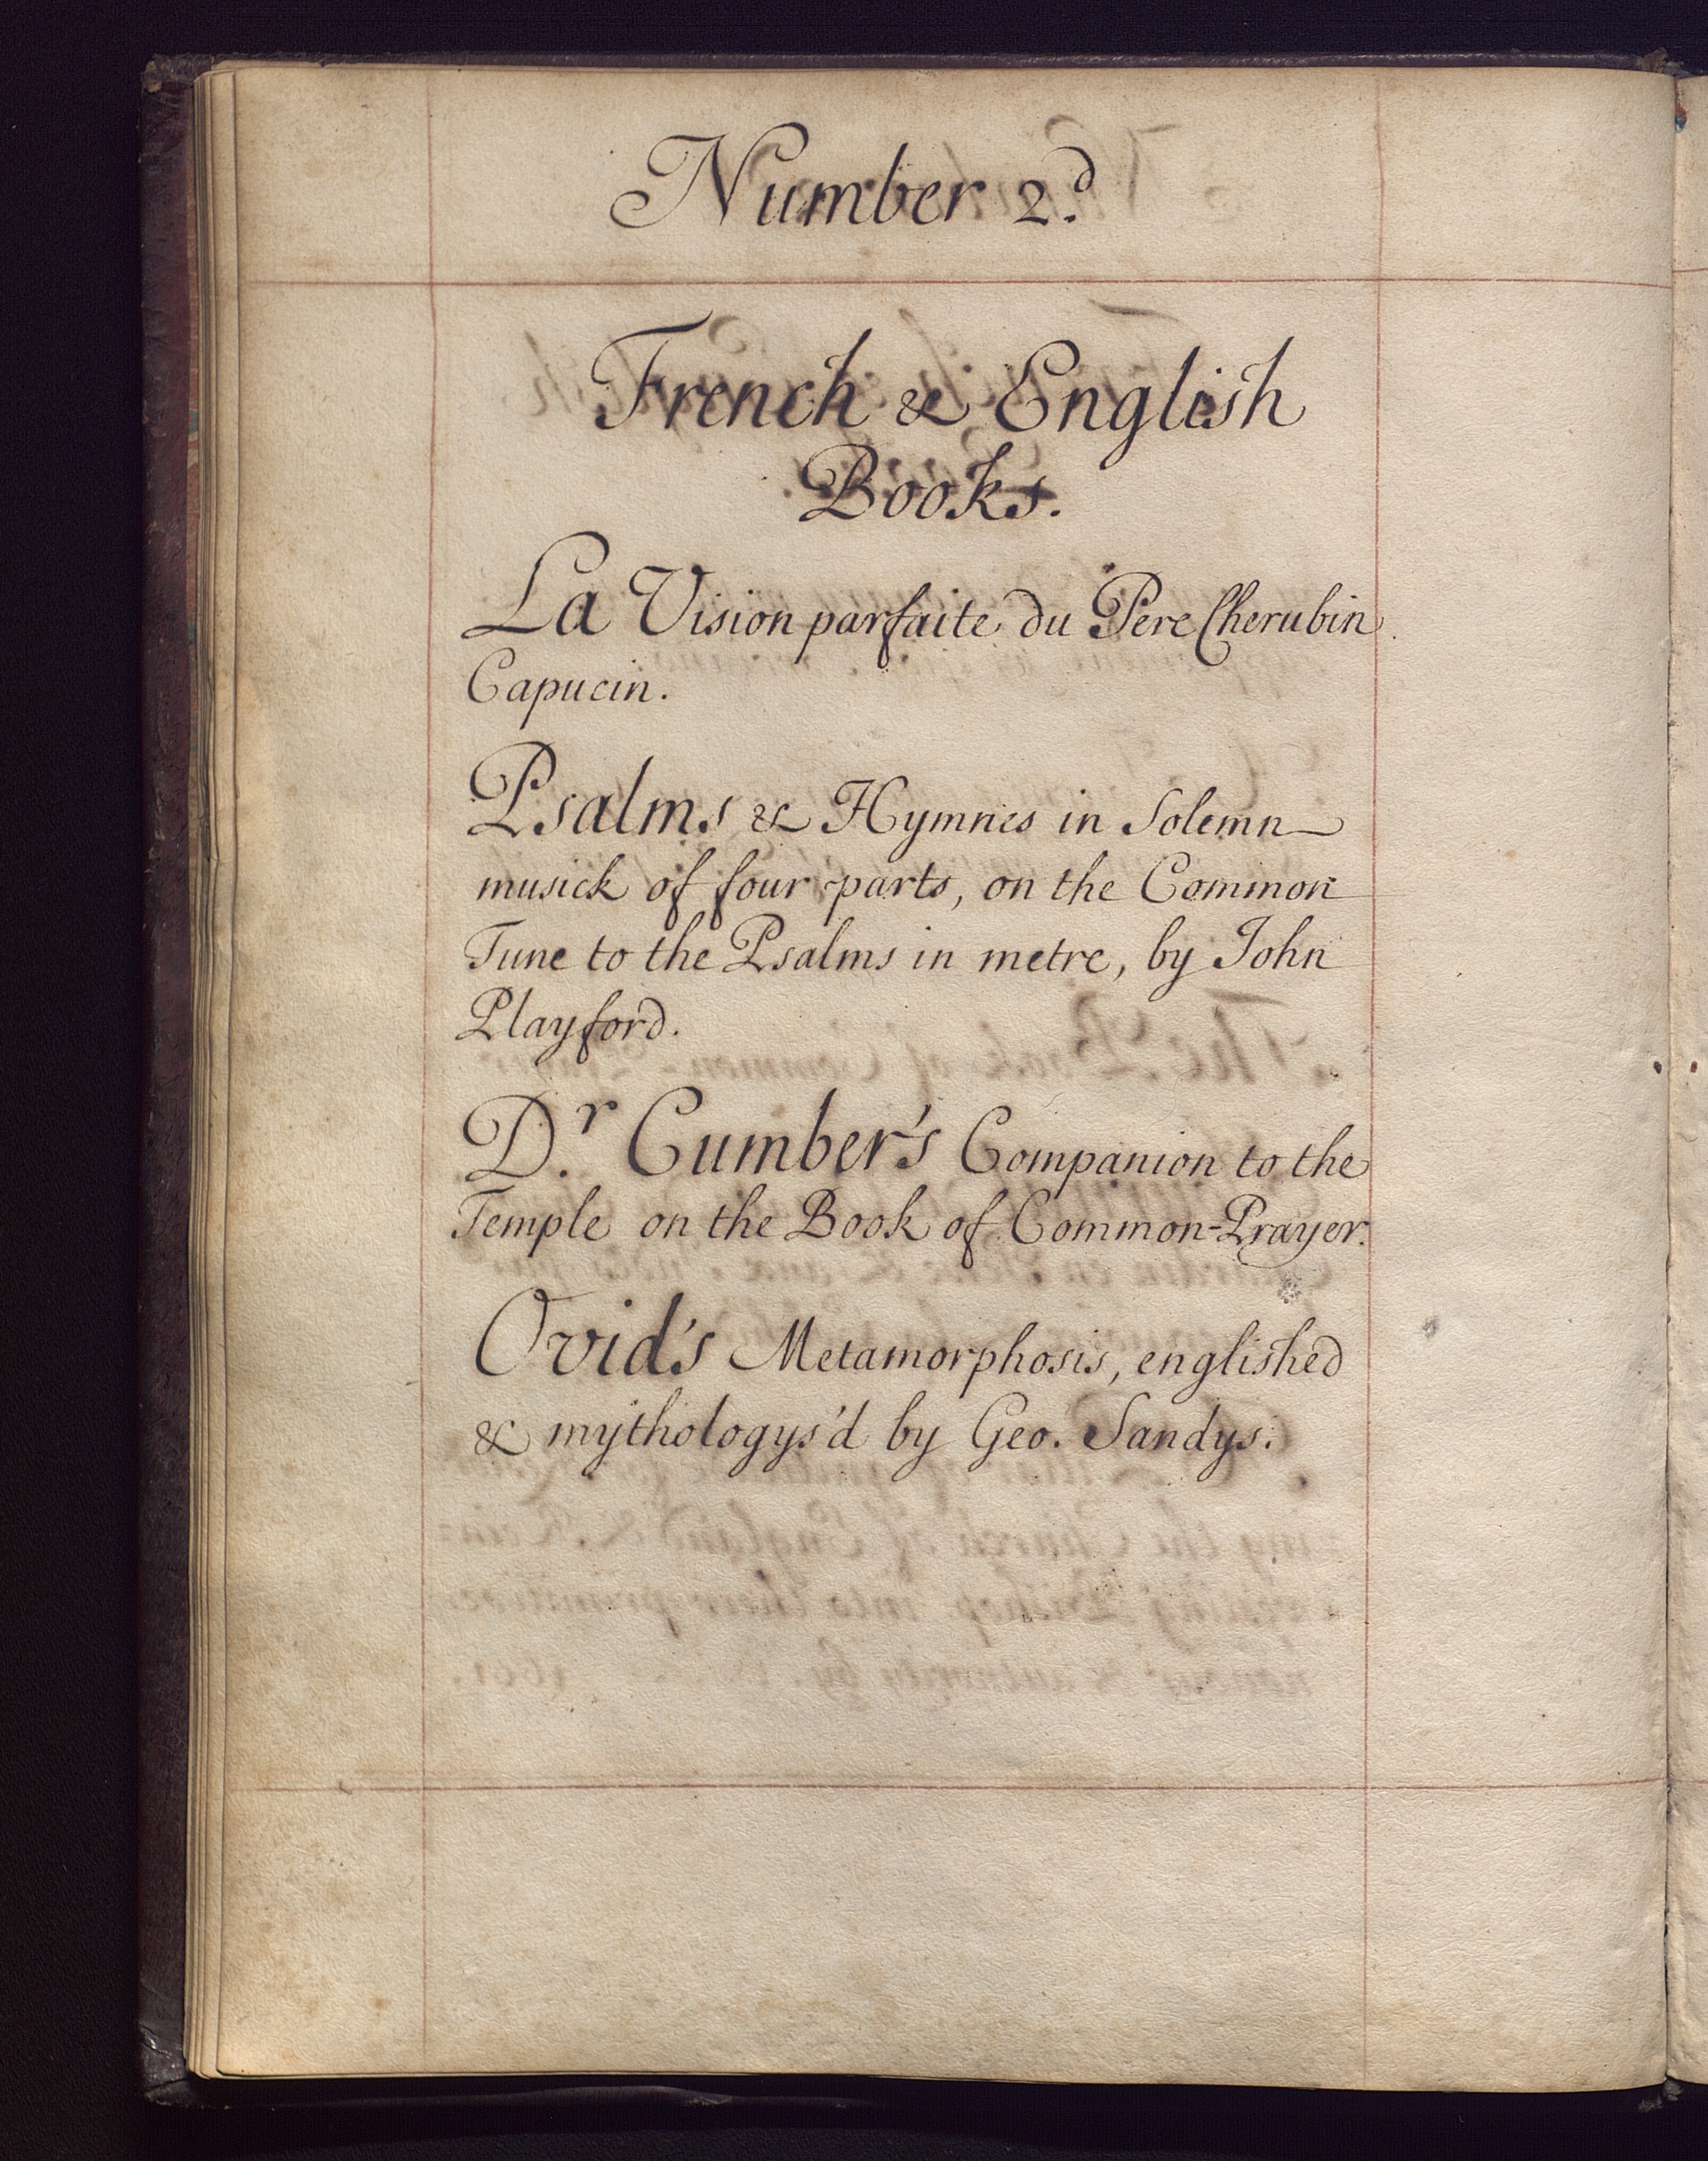 Number 2.d
French & English
Books.
La Vision parfaite du Pere Cherubin
Capucin.
Psalms & Hymnes in Solemn
musick of four parts, on the Common
Tune to the Psalms in metre, by John
Playford.
D.r Cumber's Companion to the
Temple on the Book of Common-Prayer.
Ovid's Metamorphosis, englished
& mythologys'd by Geo. Sandys.